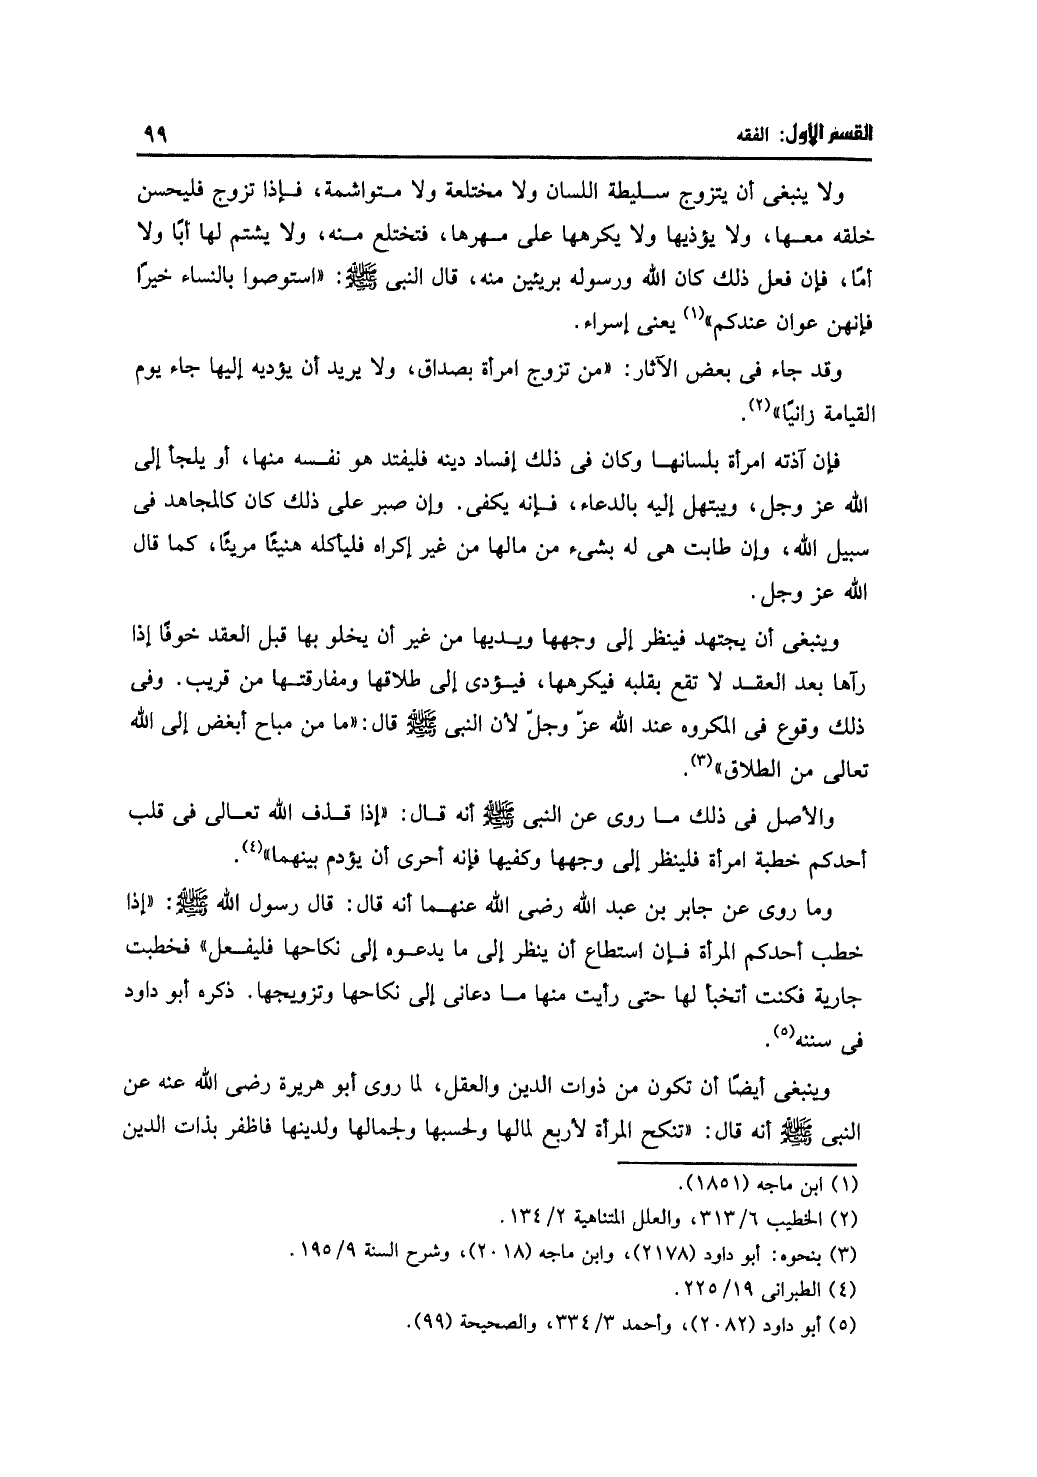 القسم الأول: الفقه ٩٩
ولا ينبغى أن يتزوج سليطة اللسان ولا مختلعة ولا متواشمة، فإذا تزوج فليحسن
خلقه معها، ولا يؤذيها ولا يكرهها على مهرها، فتختلع منه، ولا يشتم لها أبًا ولا
أمًا، فإن فعل ذلك كان الله ورسوله بريئين منه، قال النبى ﷺ: «استوصوا بالنساء خيرًا
فإنهن عوان عندكم»(١) يعنى إسراء.
وقد جاء فى بعض الآثار: «من تزوج امرأة بصداق، ولا يريد أن يؤديه إليها جاء يوم
القيامة زانيًا»(٢).
فإن آذته امرأة بلسانها وكان فى ذلك إفساد دينه فليفتد هو نفسه منها، أو يلجأ إلى
الله عز وجل، ويبتهل إليه بالدعاء، فإنه يكفى. وإن صبر على ذلك كان كالمجاهد فى
سبيل الله، وإن طابت هى له بشىء من مالها من غير إكراه فليأكله هنيئًا مريئًا، كما قال
الله عز وجل.
وينبغى أن يجتهد فينظر إلى وجهها ويديها من غير أن يخلو بها قبل العقد خوفًا إذا
رآها بعد العقد لا تقع بقلبه فيكرهها، فيؤدى إلى طلاقها ومفارقتها من قريب. وفى
ذلك وقوع فى المكروه عند الله عزّ وجلّ لأن النبى ﷺ قال: «ما من مباح أبغض إلى الله
تعالى من الطلاق»(٣).
والأصل فى ذلك ما روى عن النبى ﷺ أنه قال: «إذا قذف الله تعالى فى قلب
أحدكم خطبة امرأة فلينظر إلى وجهها وكفيها فإنه أحرى أن يؤدم بينهما»(٤).
وما روى عن جابر بن عبد الله رضى الله عنهما أنه قال: قال رسول الله ﷺ: «إذا
خطب أحدكم المرأة فإن استطاع أن ينظر إلى ما يدعوه إلى نكاحها فليفعل» فخطبت
جارية فكنت أتخبأ لها حتى رأيت منها ما دعانى إلى نكاحها وتزويجها. ذكره أبو داود
فى سننه(٥).
وينبغى أيضًا أن تكون من ذوات الدين والعقل، لما روى أبو هريرة رضى الله عنه عن
النبى ﷺ أنه قال: «تنكح المرأة لأربع لمالها ولحسبها ولجمالها ولدينها فاظفر بذات الدين
(١) ابن ماجه (١٨٥١).
(٢) الخطيب ٣١٣/٦، والعلل المتناهية ١٣٤/٢.
(٣) بنحوه: أبو داود (٢١٧٨)، وابن ماجه (٢٠١٨)، وشرح السنة ١٩٥/٩.
(٤) الطبرانى ٢٢٥/١٩.
(٥) أبو داود (٢٠٨٢)، وأحمد ٣٣٤/٣، والصحيحة (٩٩).